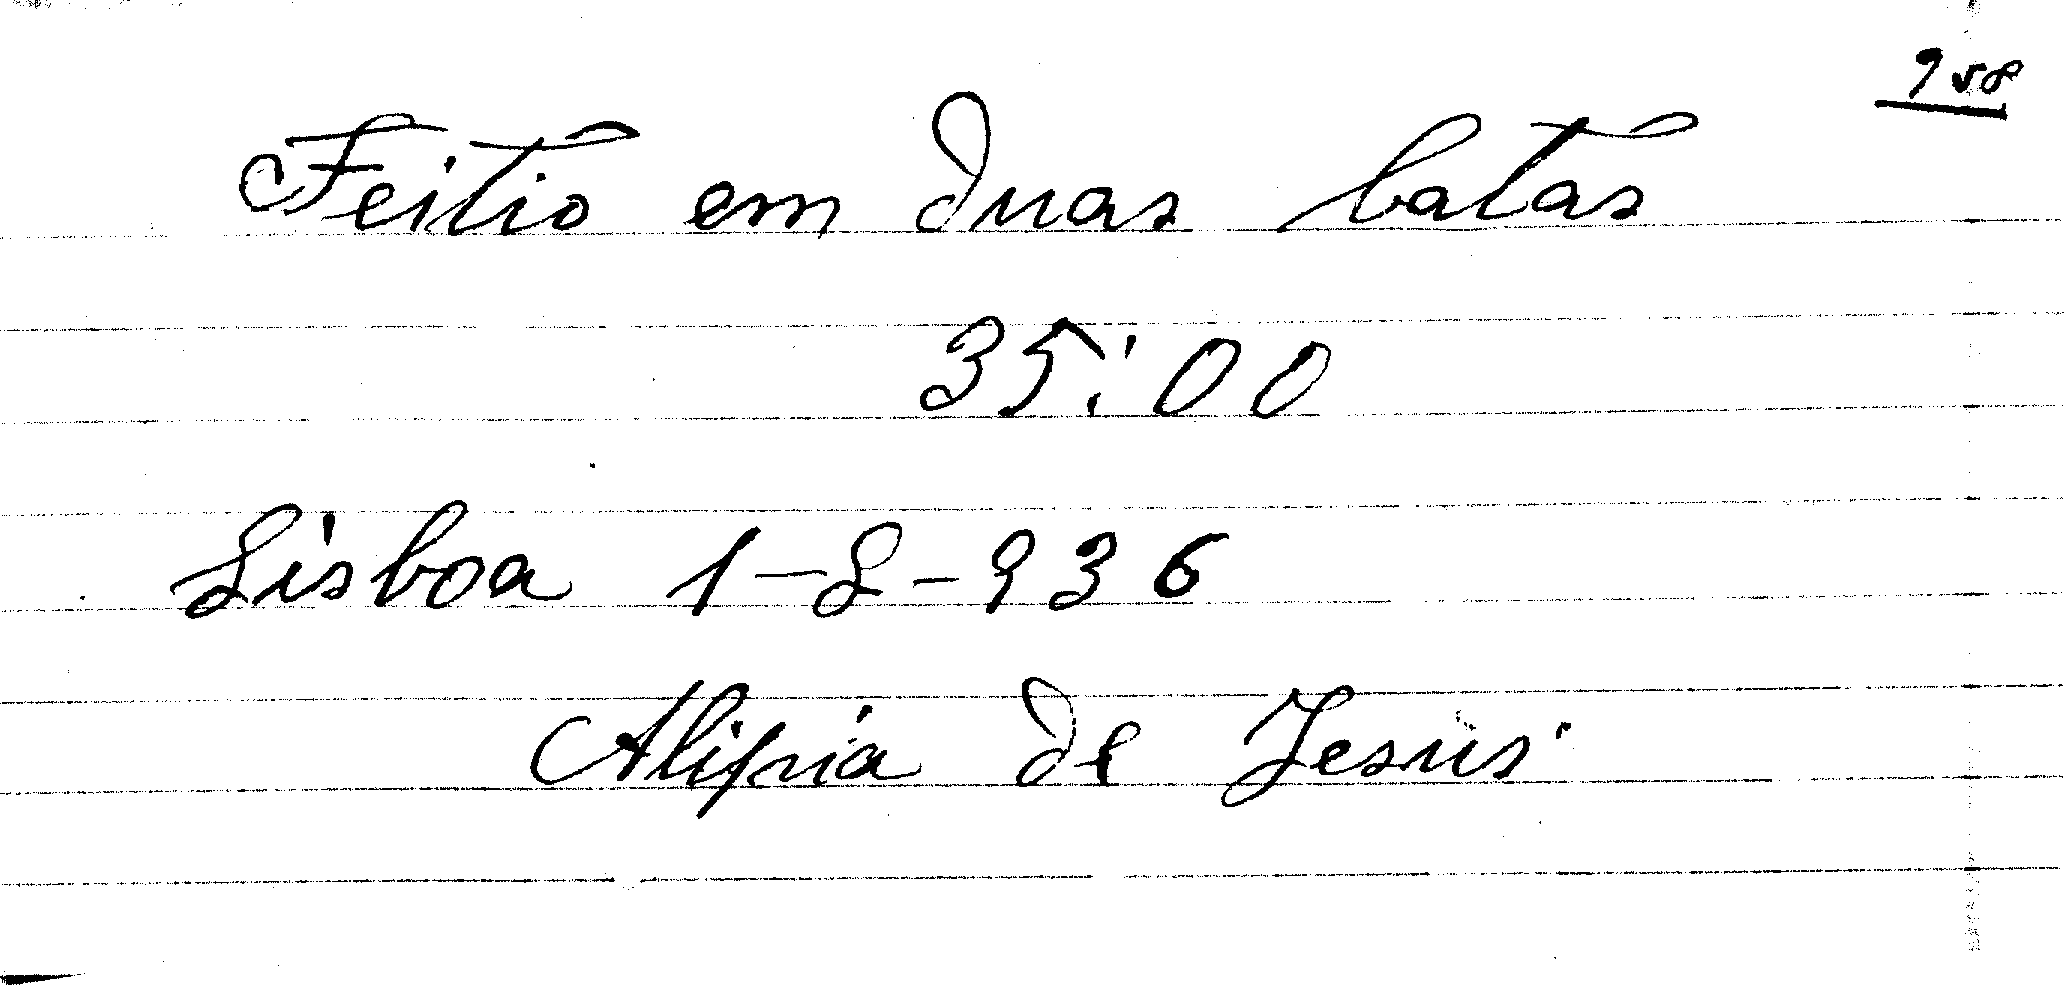 958
Feitio em duas batas
35:00
Lisboa 1-8-936
Alipia de Jesus